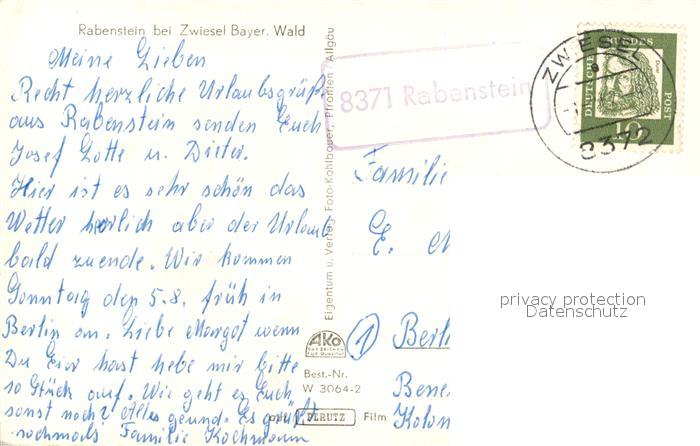 Rabenstein bei Zwiesel Bayer. Wald
Meine Lieben
Recht herzliche Urlaubsgrüße
aus Rabenstein senden Euch
Josef Lotte u. Dieter.
Hier ist es sehr schön das
Wetter herlich aber der Urlaub
bald zuende. Wir kommen
Sonntag den 5.8. früh in
Berlin an. Liebe Margot wenn
Du Eier hast hebe mir bitte
10 Stück auf. Wie geht es Euch
sonst noch? Alles gesund. Es grüßt
nochmals Familie Kochmann
Eigentum u. Verlag Foto-Kohlbauer, Pfronten/Allgäu
AKO
DAS ZEICHEN
FÜR QUALITÄT
Best.-Nr.
W 3064-2
auf PERUTZ Film
8371 Rabenstein
ZWIESEL
8372
DEUTSCHE BUNDESPOST
10
Familie
E.
1 Berl
Bene
Kolon
privacy protection
Datenschutz